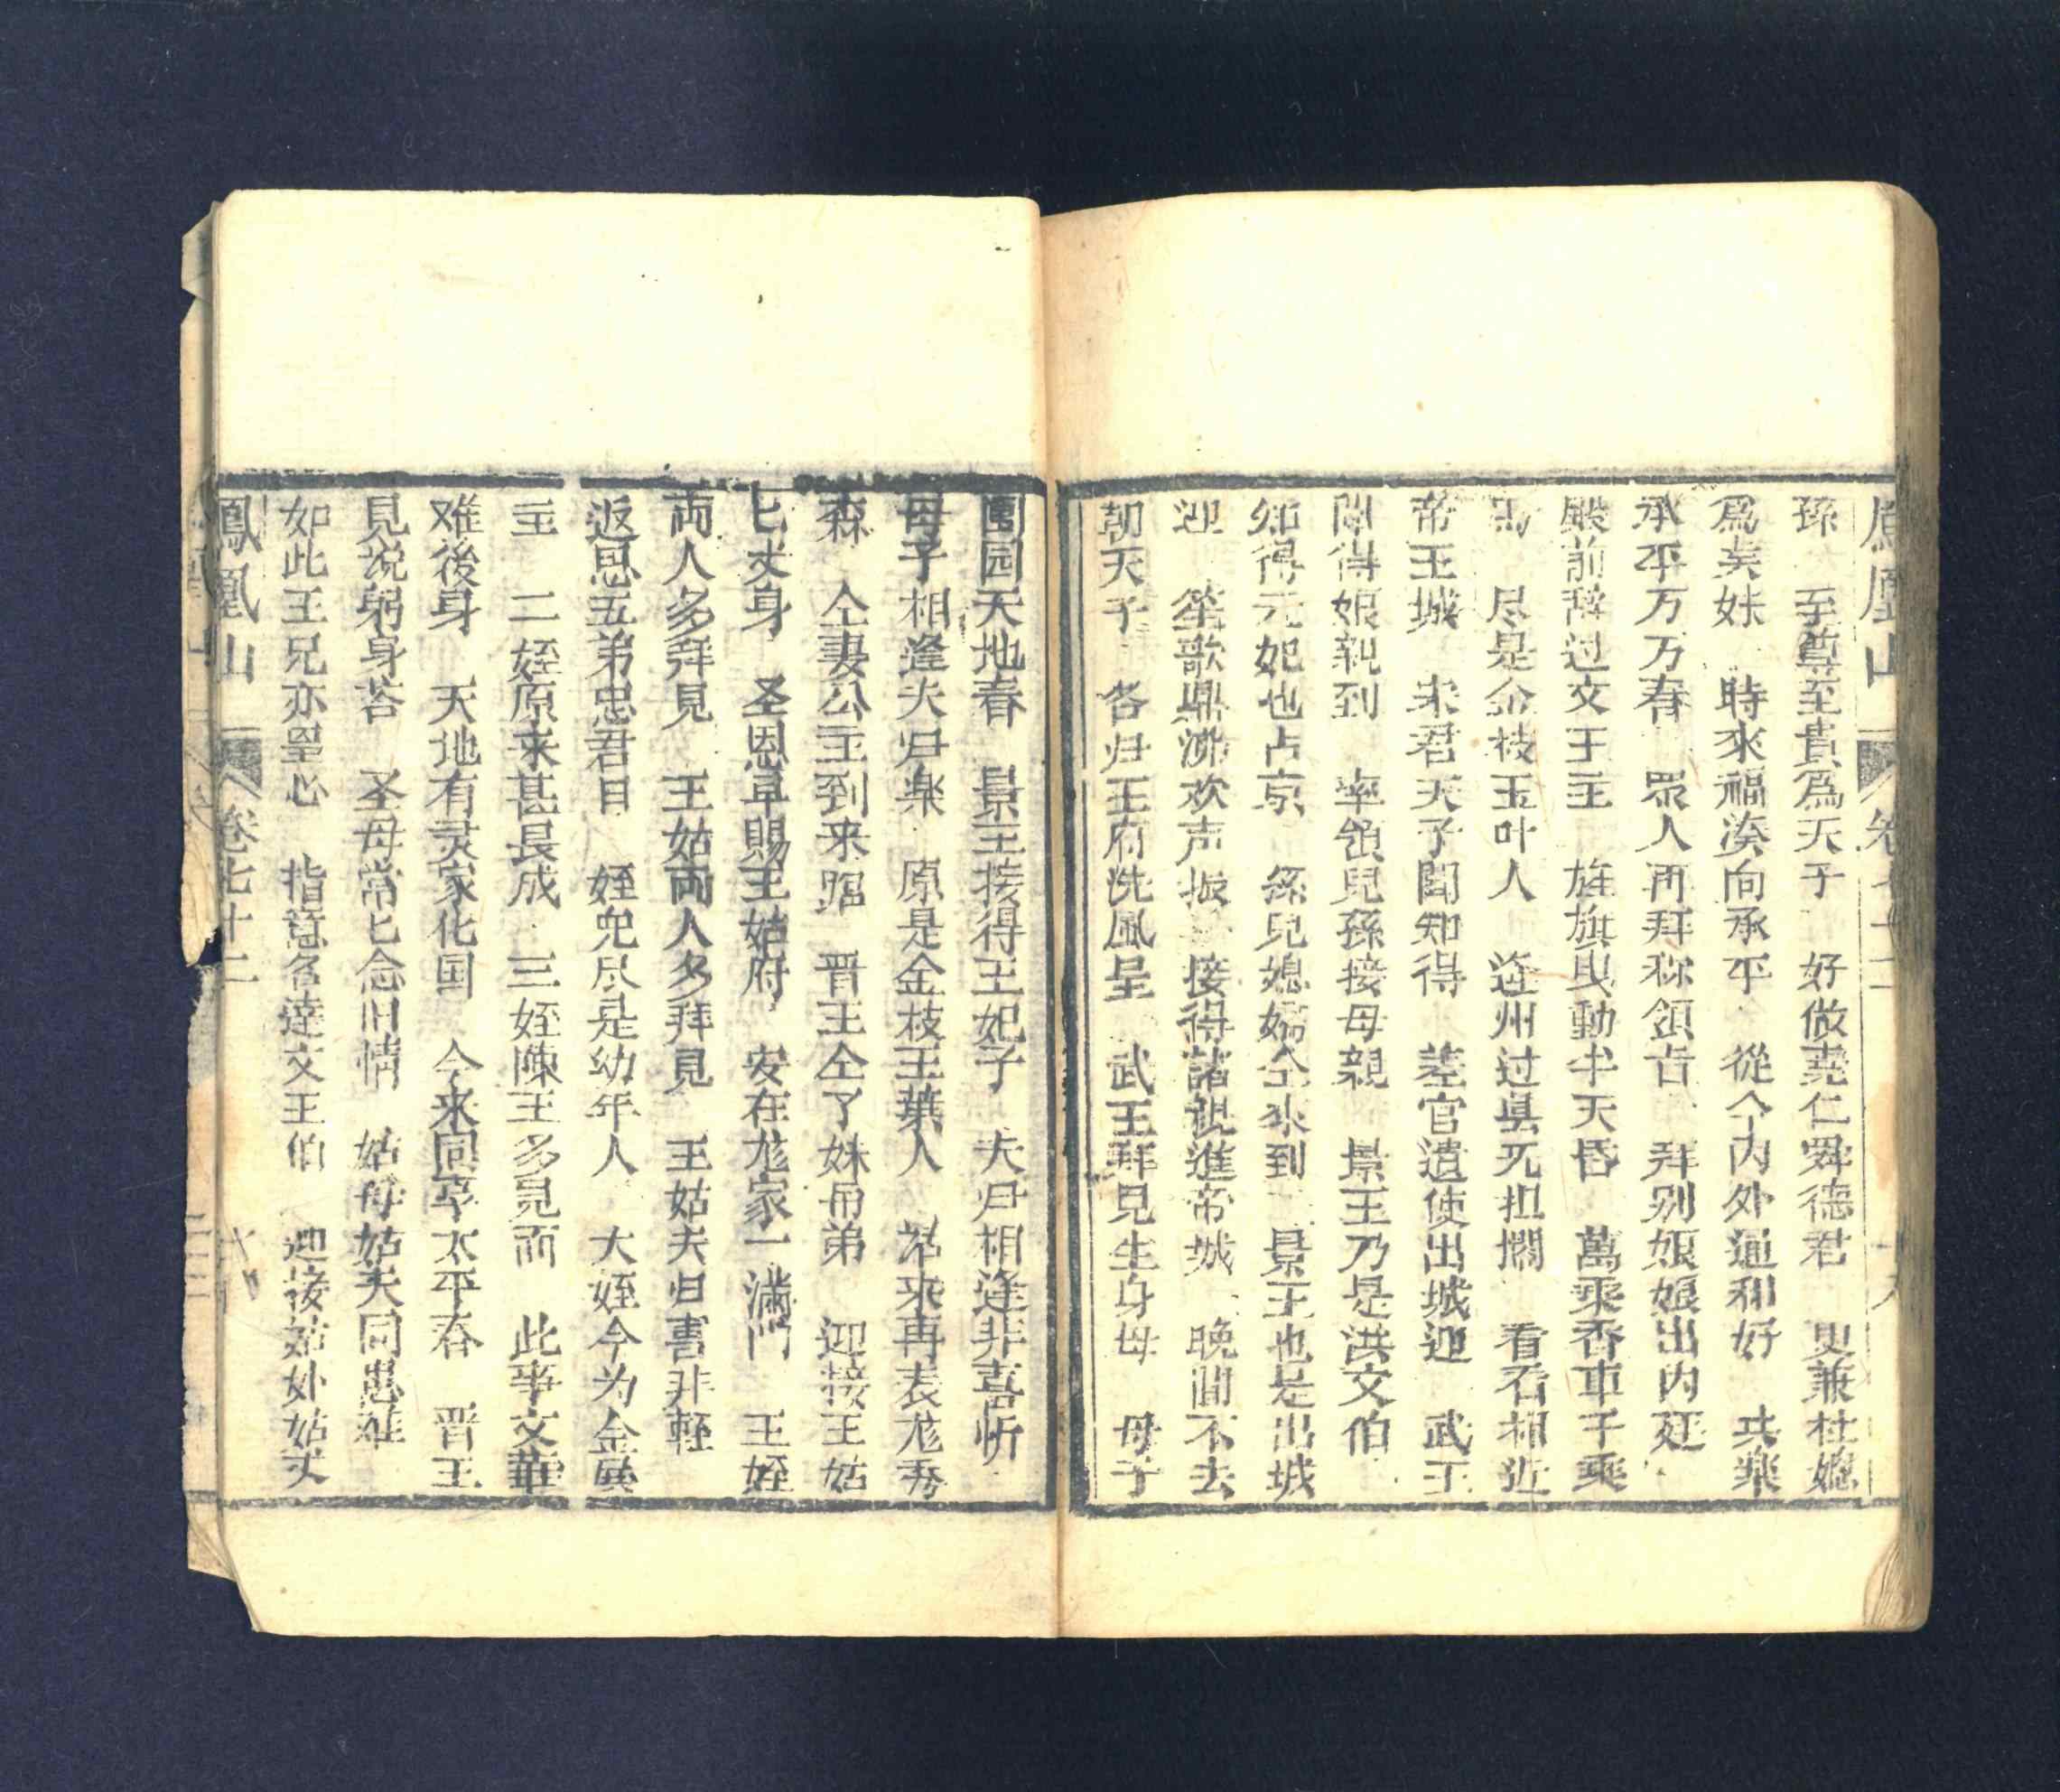 鳳凰山 卷七十二
孫 至尊至貴爲天子 好做堯仁舜德君 更兼杜媳
爲矣妹 時來福湊向承平 從今內外通和好 共樂
承平万万春 眾人再拜称領旨 拜别娘娘出内廷
殿前辞过文王主 旌旗曳動半天昏 萬乘香車千乘
馬 尽是金枝玉叶人 逢州过县无担擱 看看相近
帝王城 宋君天子聞知得 差官遣使出城迎 武王
聞得娘親到 率領兒孫接母親 景王乃是洪文伯
知得元妃也占京 孫兒媳婦仝來到 景王也是出城
迎 笙歌鼎沸欢声振 接得諸親進帝城 晚間不去
朝天子 各归王府洗風呈 武王拜見生身母 母子
團园天地春 景王接得王妃子 夫归相逢非喜忻
母子相逢夫归楽 原是金枝王葉人 帋來再表尨秀
森 仝妻公主到来臨 晋王仝了妹帋弟 迎接王姑
匕丈身 圣恩早賜王姑府 安在尨家一满門 王姪
両人多拜見 王姑両人多拜見 王姑夫归書非輕
返思五弟忠君日 姪兜尽是幼年人 大姪今为金展
主 二姪原来甚長成 三姪陳王多見面 此事文華
难後身 天地有灵家化国 今来同享太平春 晋王
見说躬身荅 圣母常匕念旧情 姑母姑夫同患难
如此王兄亦罣心 指意名達文王伯 迎接姑妳姑丈
鳳凰山 卷七十二